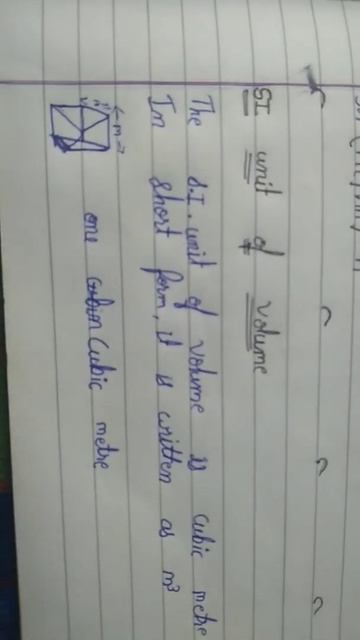 SI unit of volume
The S.I. unit of volume is cubic metre
In short form, it is written as m³
←m→
one Cubic metre